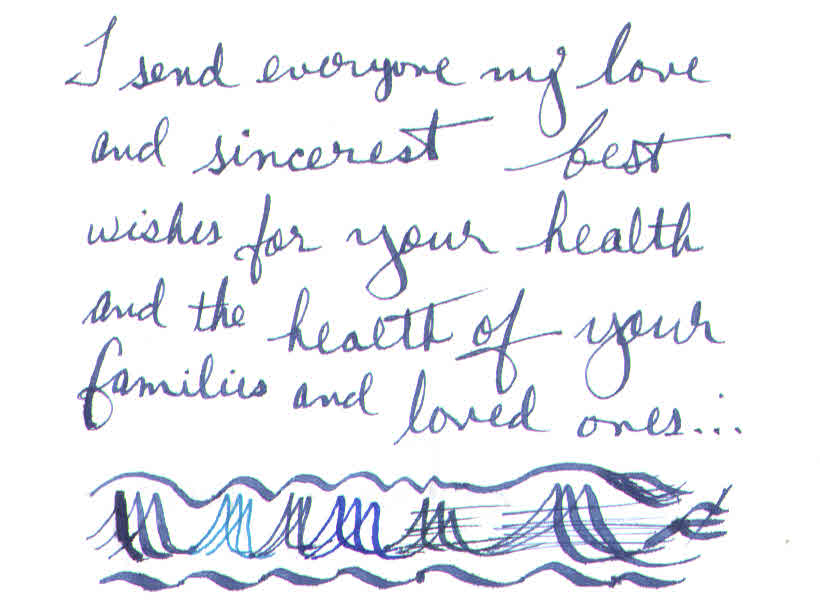 I send everyone my love
and sincerest best
wishes for your health
and the health of your
families and loved ones...